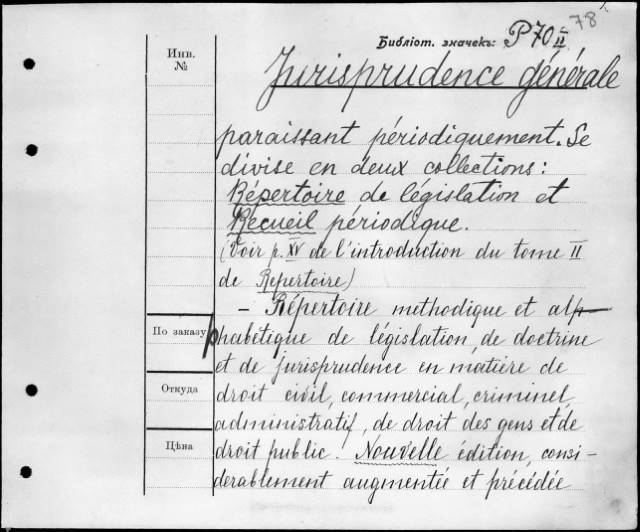 78
Библіот. значекъ: P70 II
Инв.
№
Jurisprudence générale
paraissant périodiquement. Se
divise en deux collections:
Répertoire de législation et
Recueil périodique.
(Voir p. XV de l'introduction du tome II
de Repertoire)
– Répertoire methodique et alp-
По заказу
phabétique de législation, de doctrine
et de jurisprudence en matière de
Откуда
droit civil, commercial, criminel,
administratif, de droit des gens et de
Цѣна
droit public. Nouvelle édition, consi-
derablement augmentée et précédée